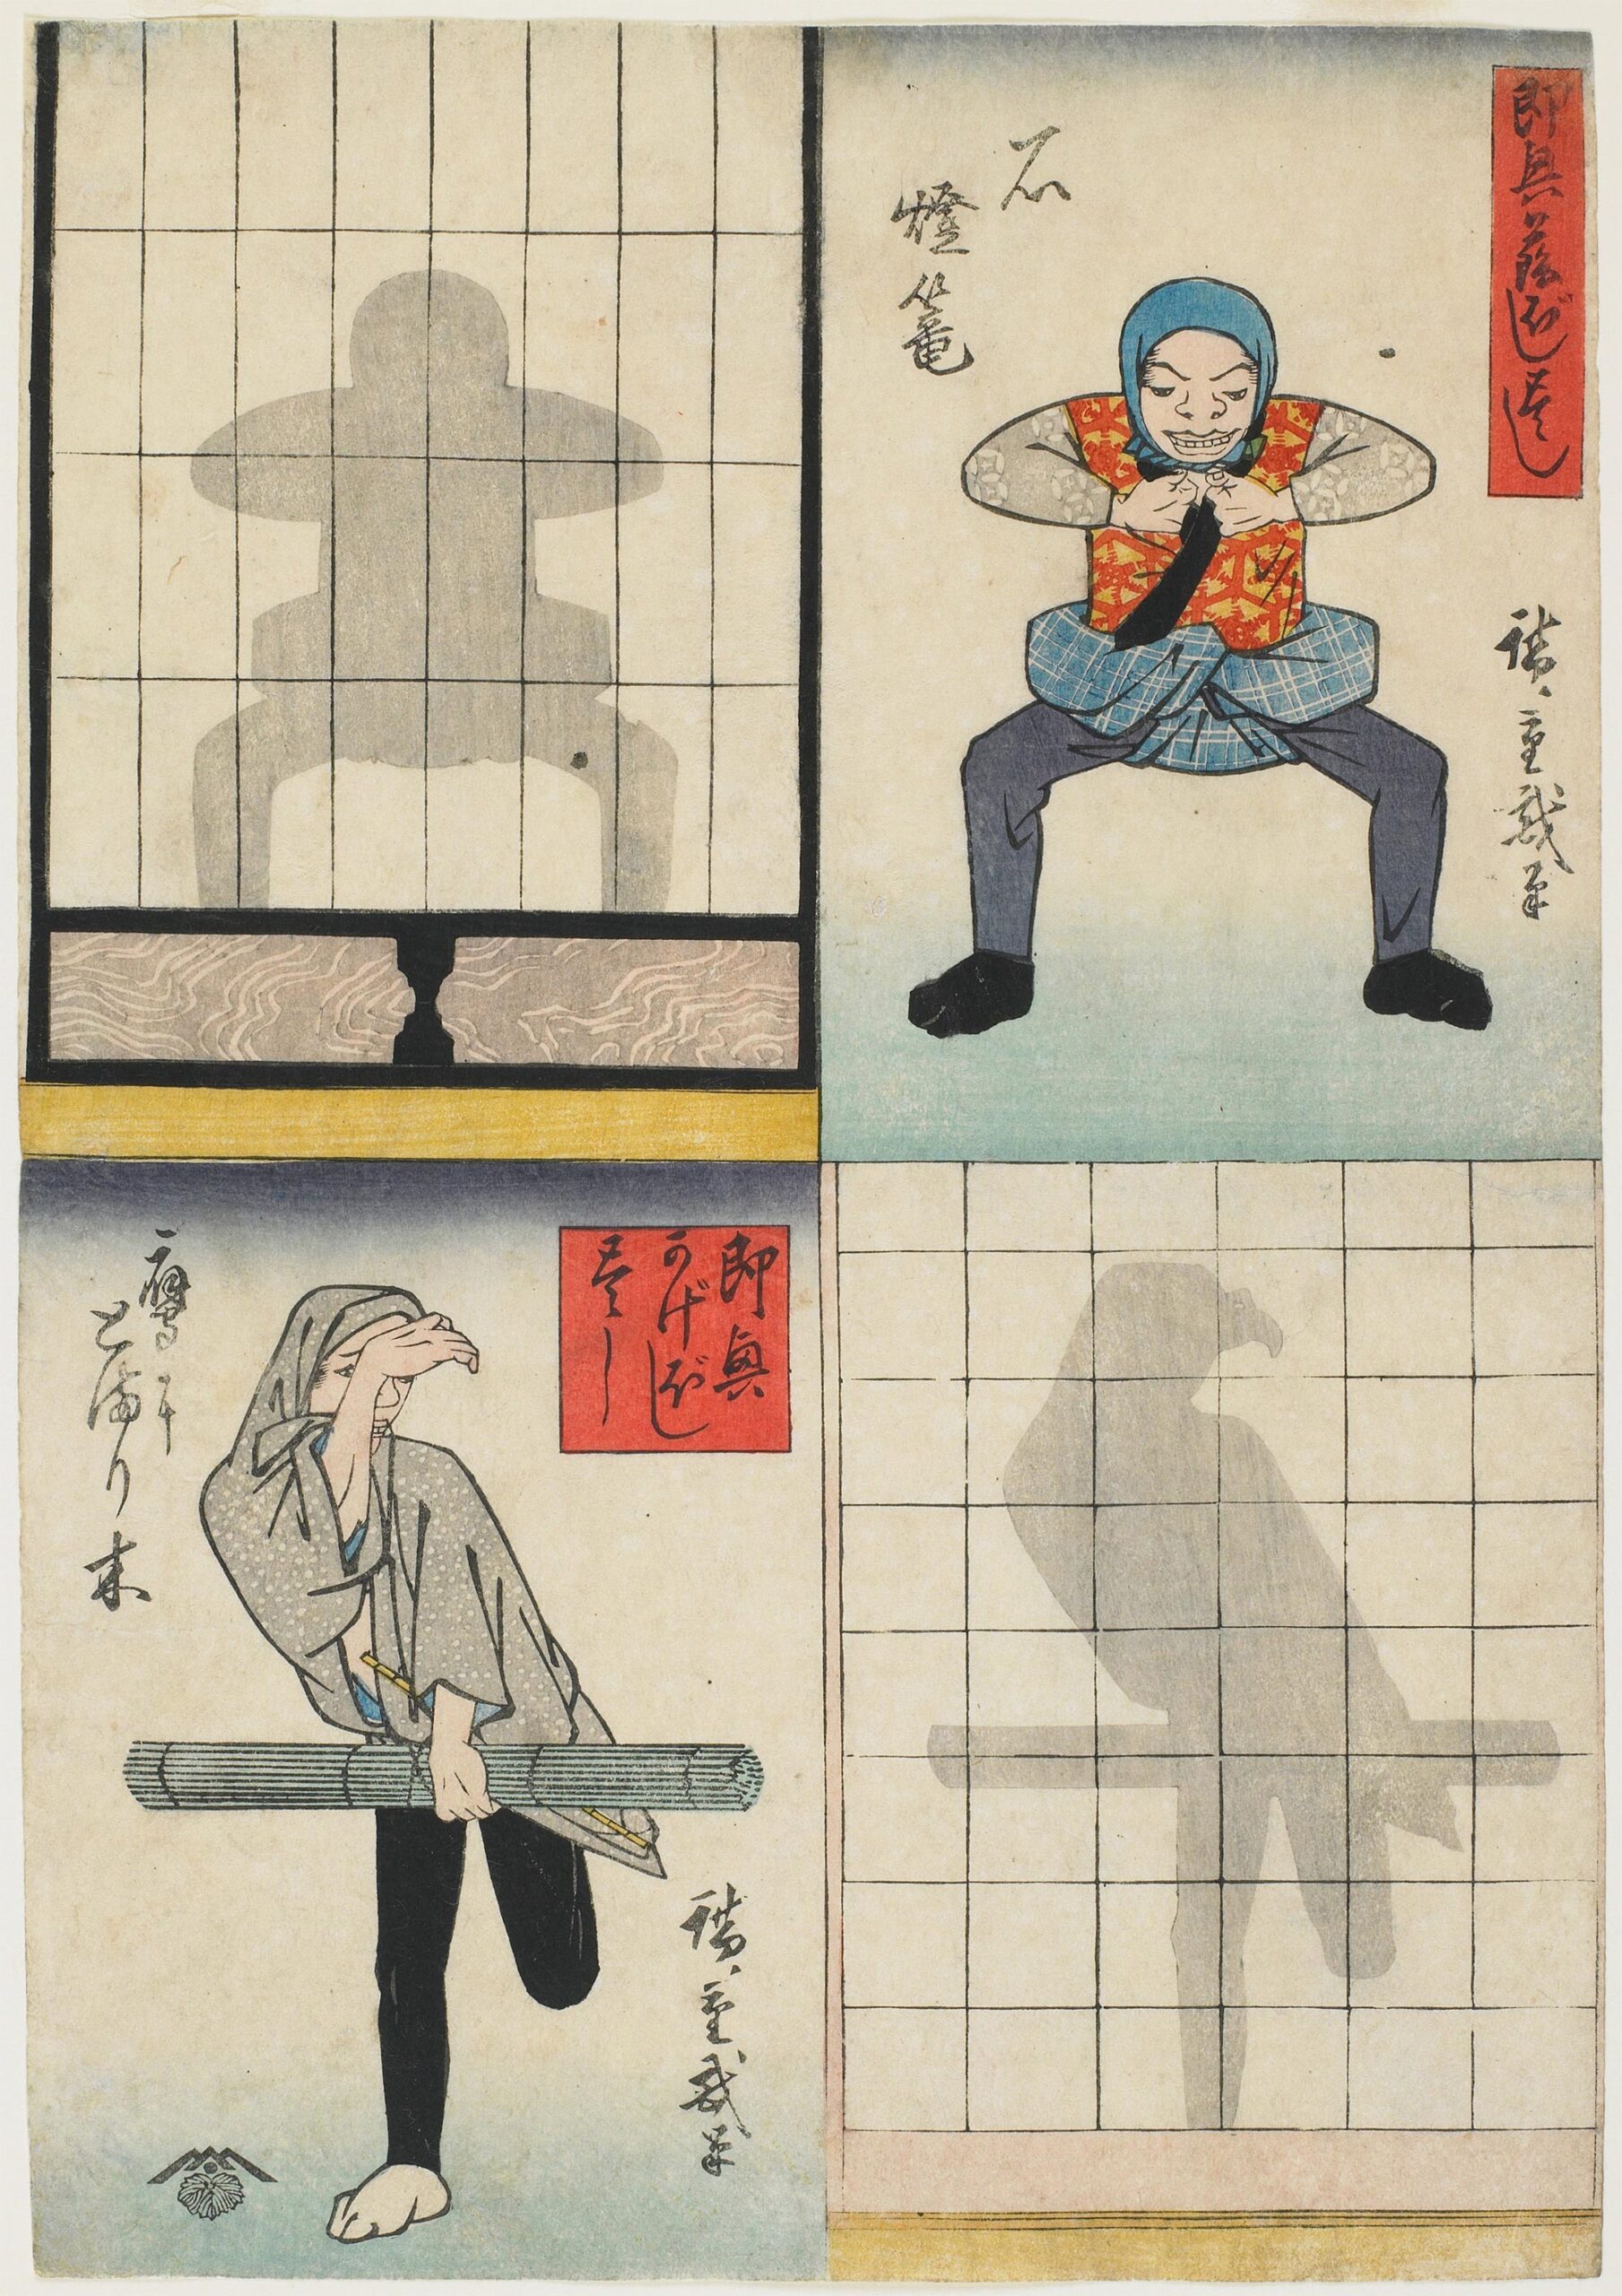 即興蔭ぼし尽し
石
燈篭
廣重戯筆
即興
かげぼし
尽し
鷹に
とまり木
廣重戯筆